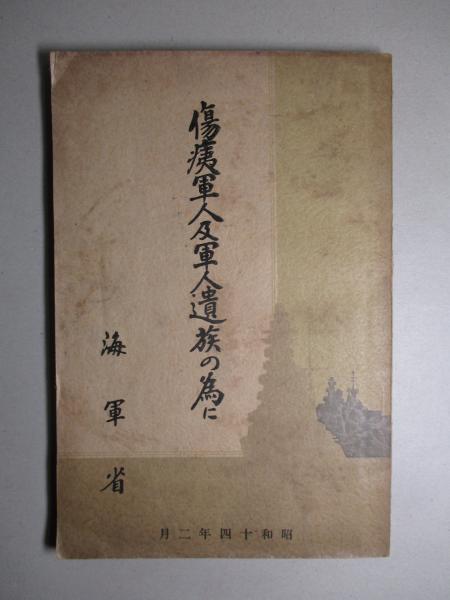 傷痍軍人及軍人遺族の為に
海軍省
昭和十四年二月